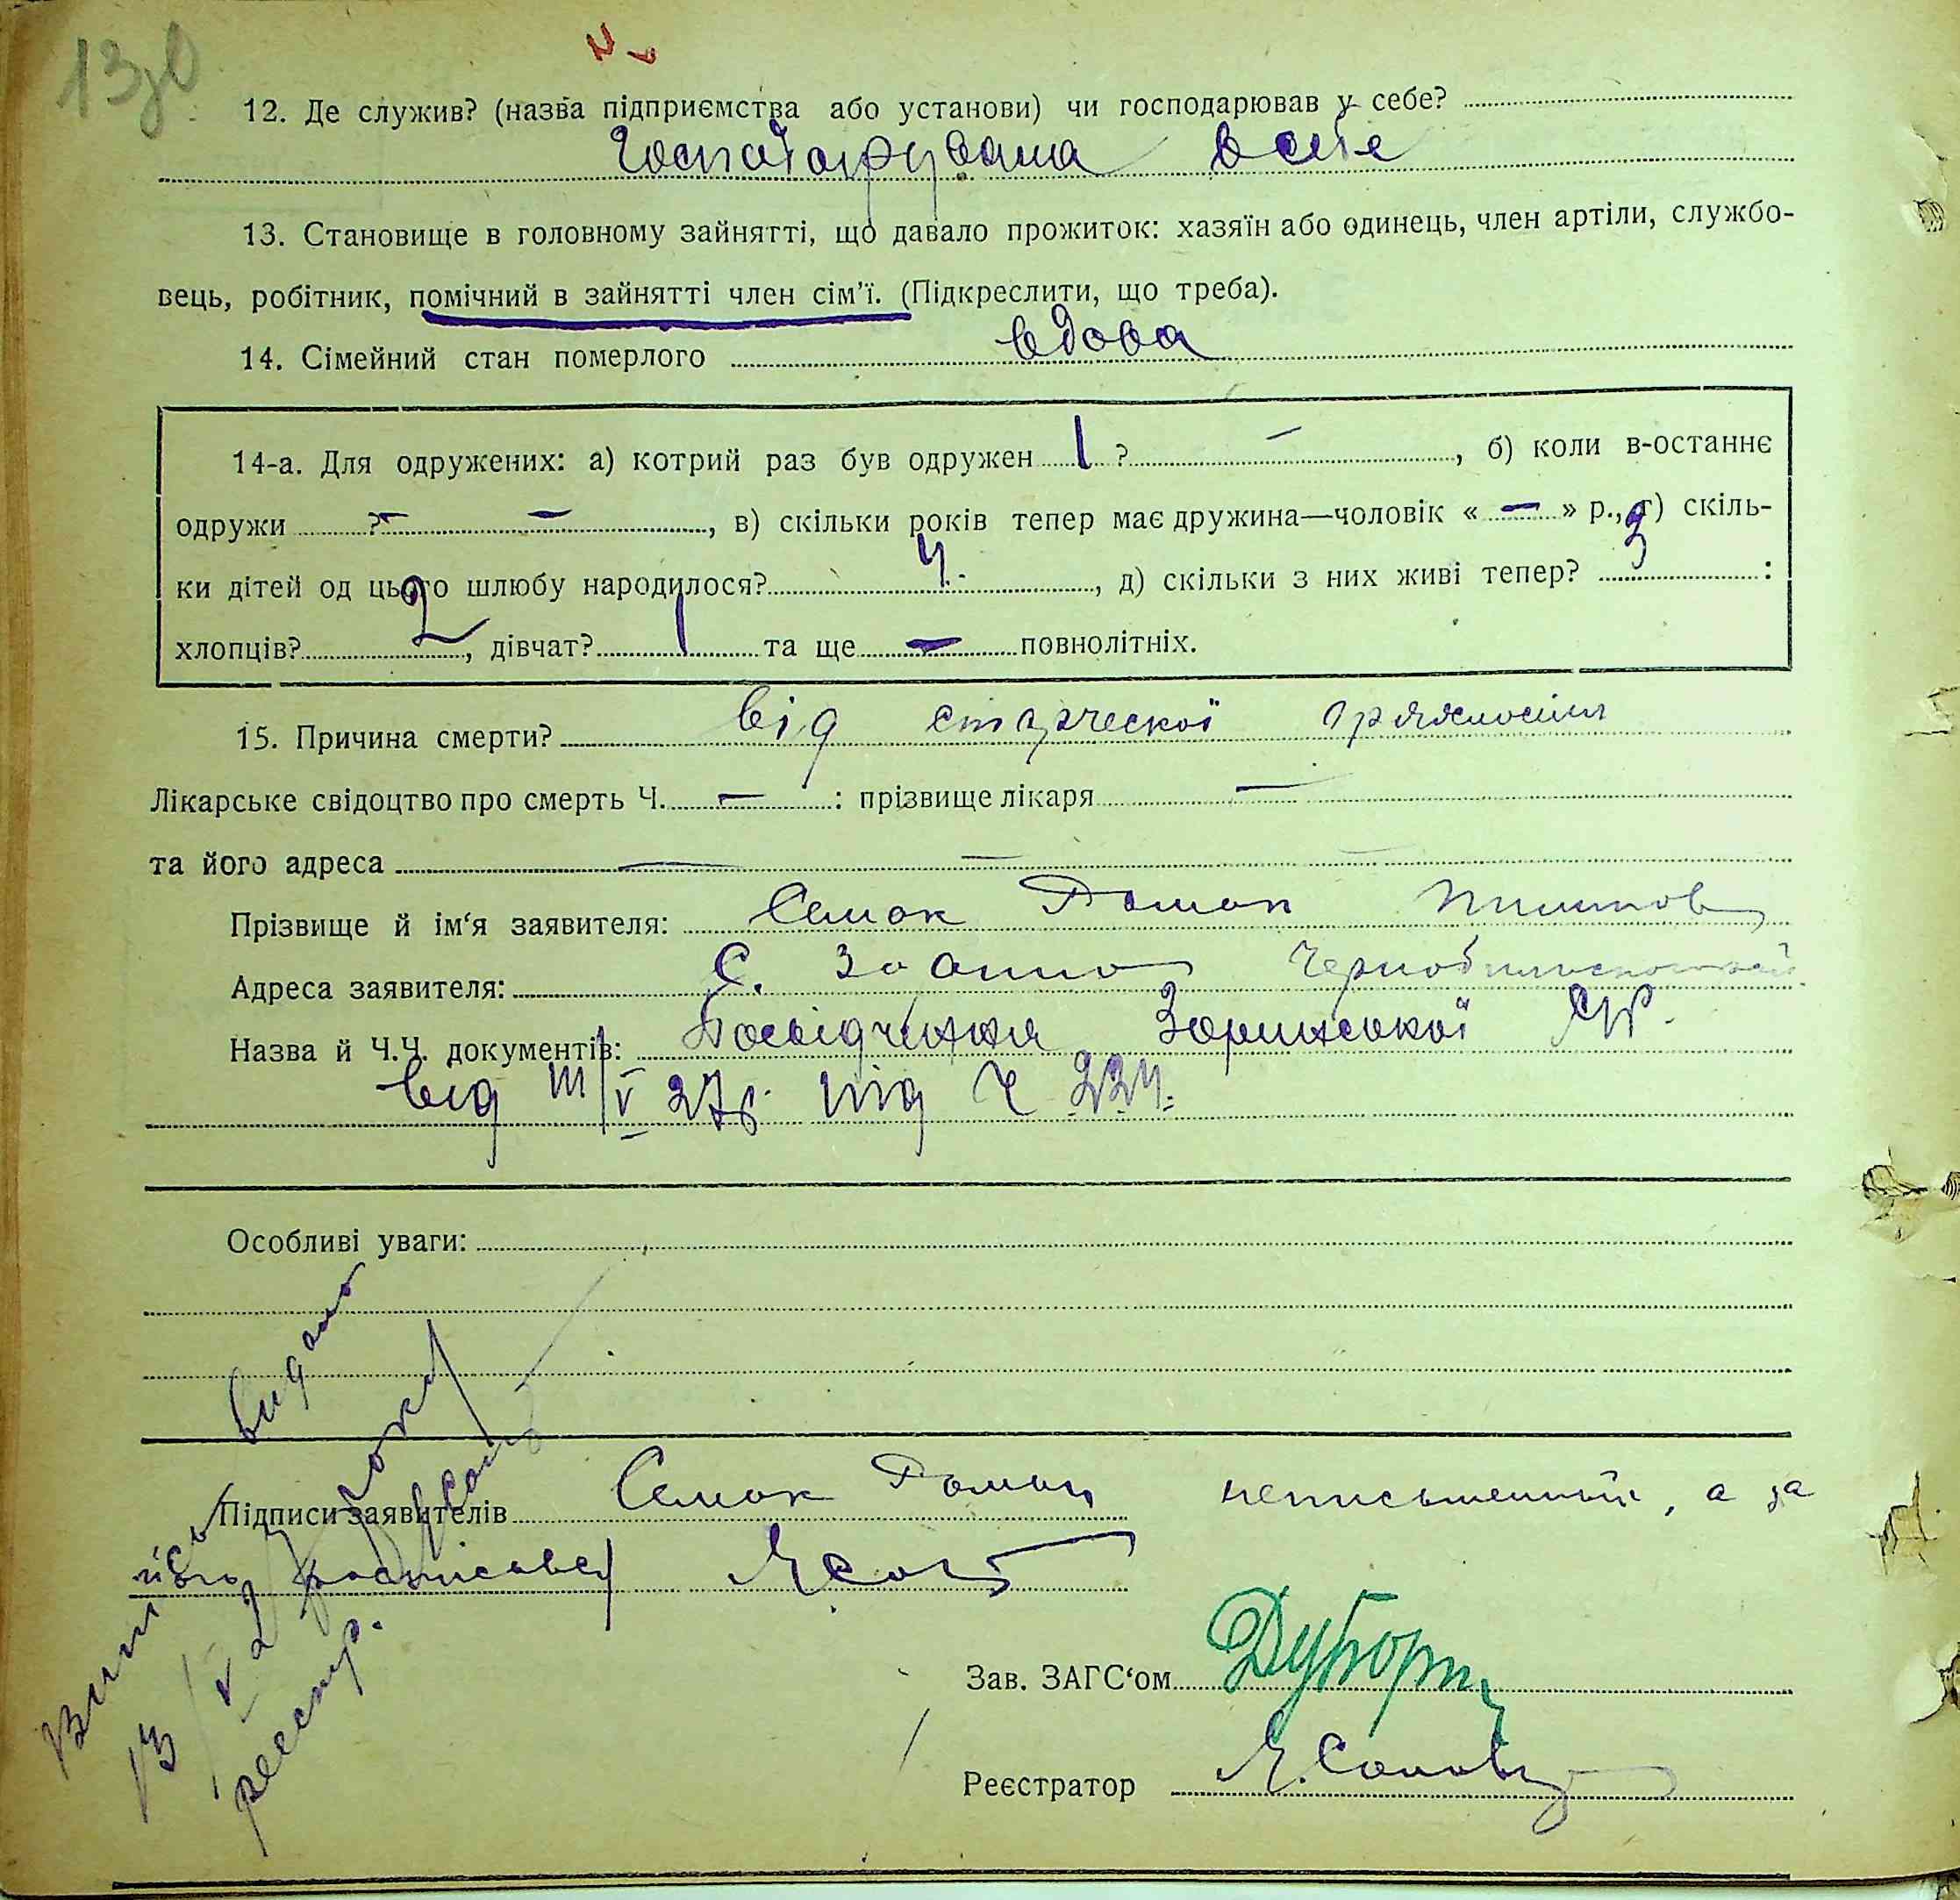 13зв
12. Де служив? (назва підприємства або установи) чи господарював у себе?
Господарувала в себе
13. Становище в головному зайнятті, що давало прожиток: хазяїн або одинець, член артіли, службо-
вець, робітник, помічний в зайнятті член сім’ї. (Підкреслити, що треба).
14. Сімейний стан померлого вдова
14-а. Для одружених: а) котрий раз був одружен 1 ? —, б) коли в-останнє
одружи ? —, в) скільки років тепер має дружина—чоловік « — » р., г) скіль-
ки дітей од цього шлюбу народилося? 4, д) скільки з них живі тепер? 3 :
хлопців? 2, дівчат? 1 та ще — повнолітніх.
15. Причина смерти? від старческої
Лікарське свідоцтво про смерть Ч. — : прізвище лікаря —
та його адреса — —
Прізвище й ім‘я заявителя: Семак Роман
Адреса заявителя: С.
Назва й Ч.Ч. документів: Посвідчення Зоринської С/Р.
від III/V 27р. під Ч 224.
Особливі уваги:
видано
Підписи заявителів Семак Роман неписьменний, а за
його росписався
Зав. ЗАГС‘ом
Реєстратор
реєстр.